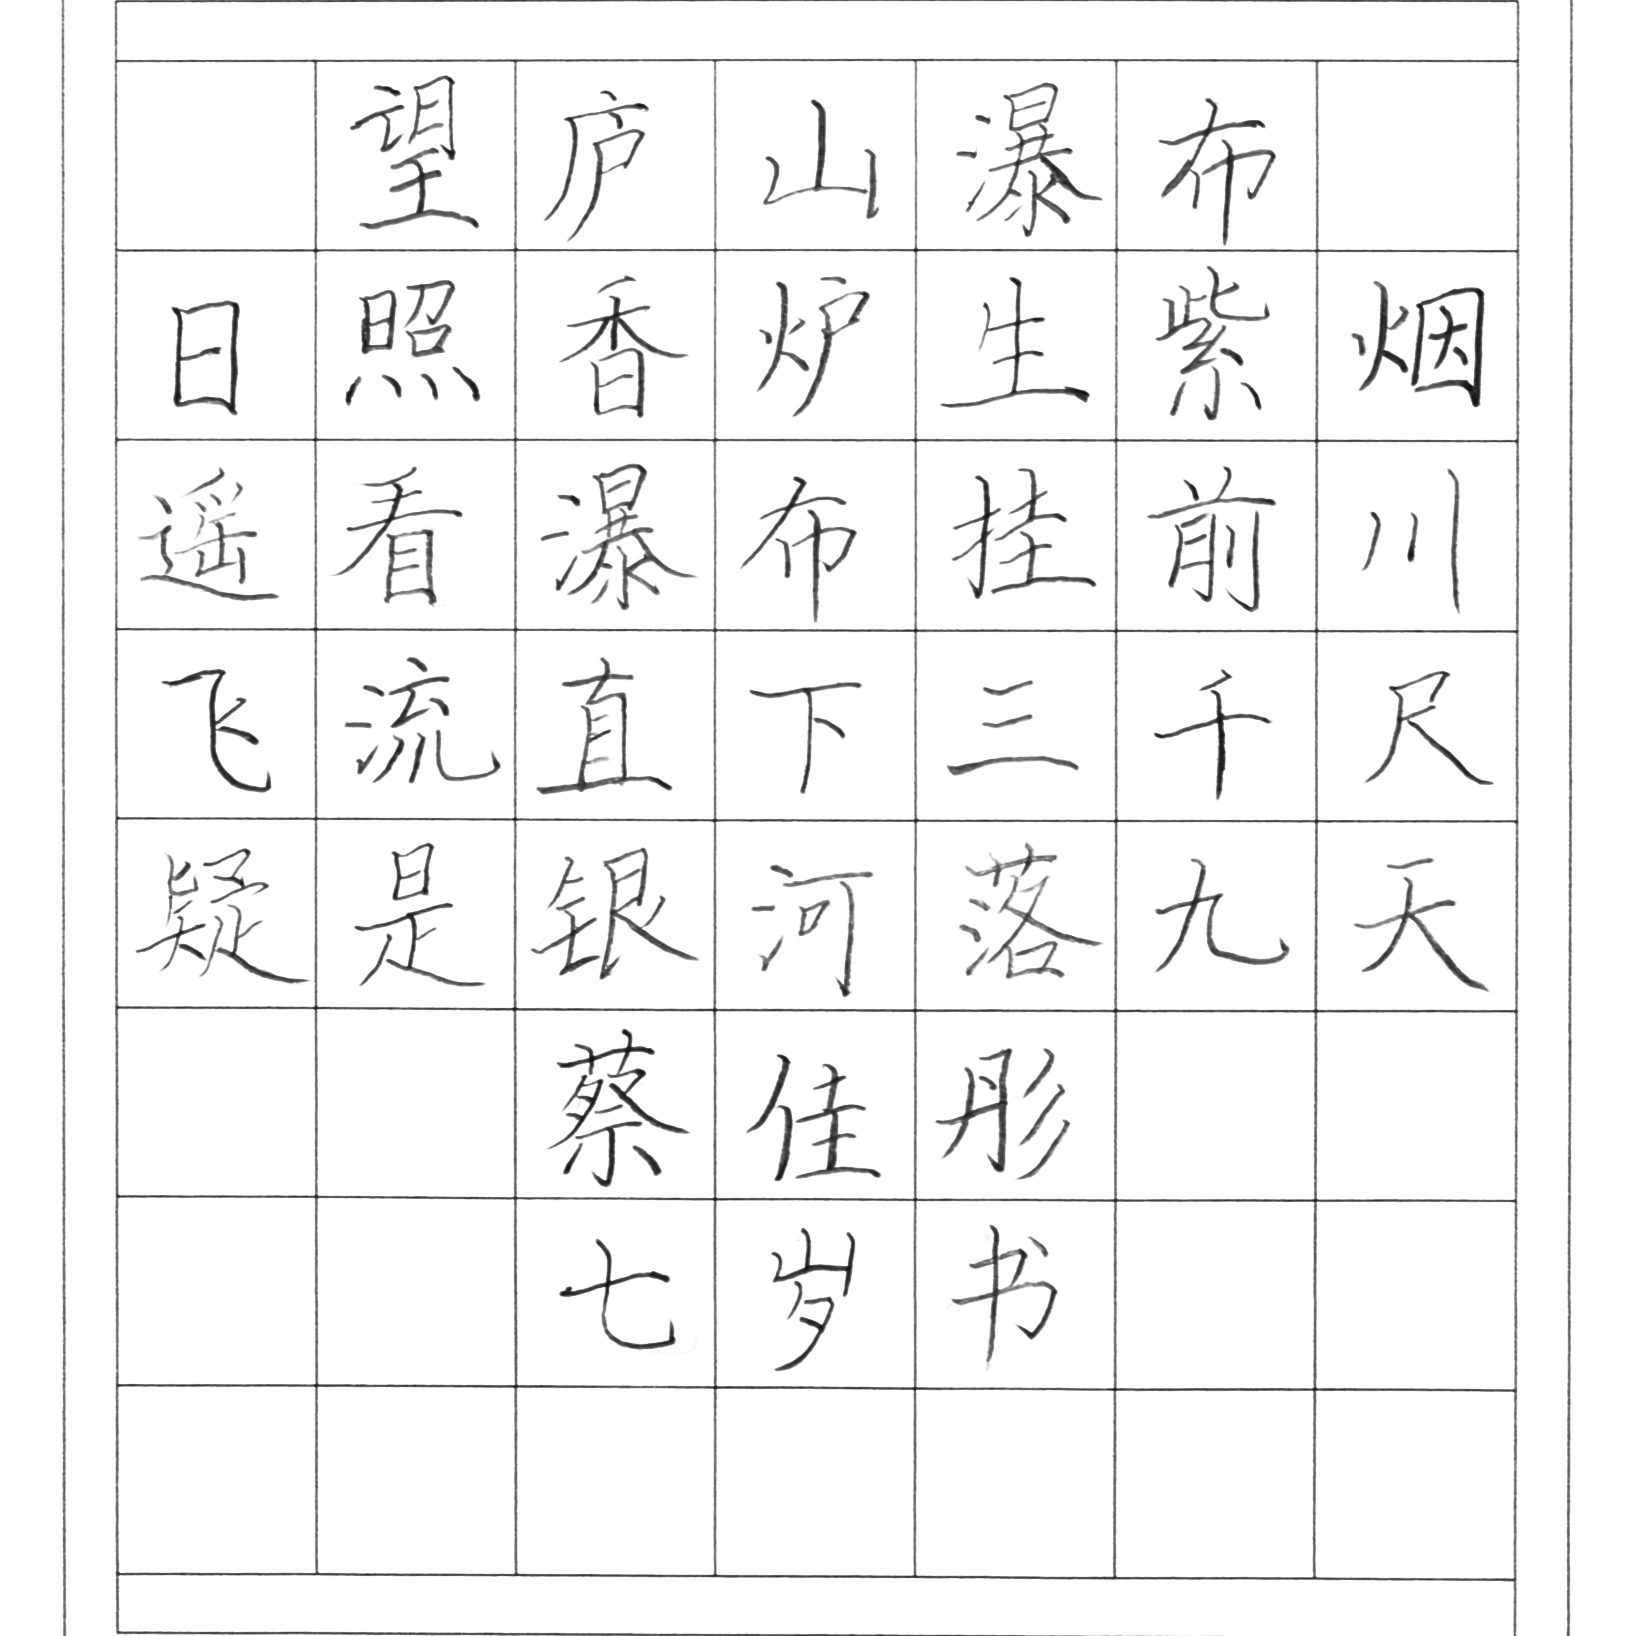 望庐山瀑布
日照香炉生紫烟
遥看瀑布挂前川
飞流直下三千尺
疑是银河落九天
蔡佳彤
七岁书